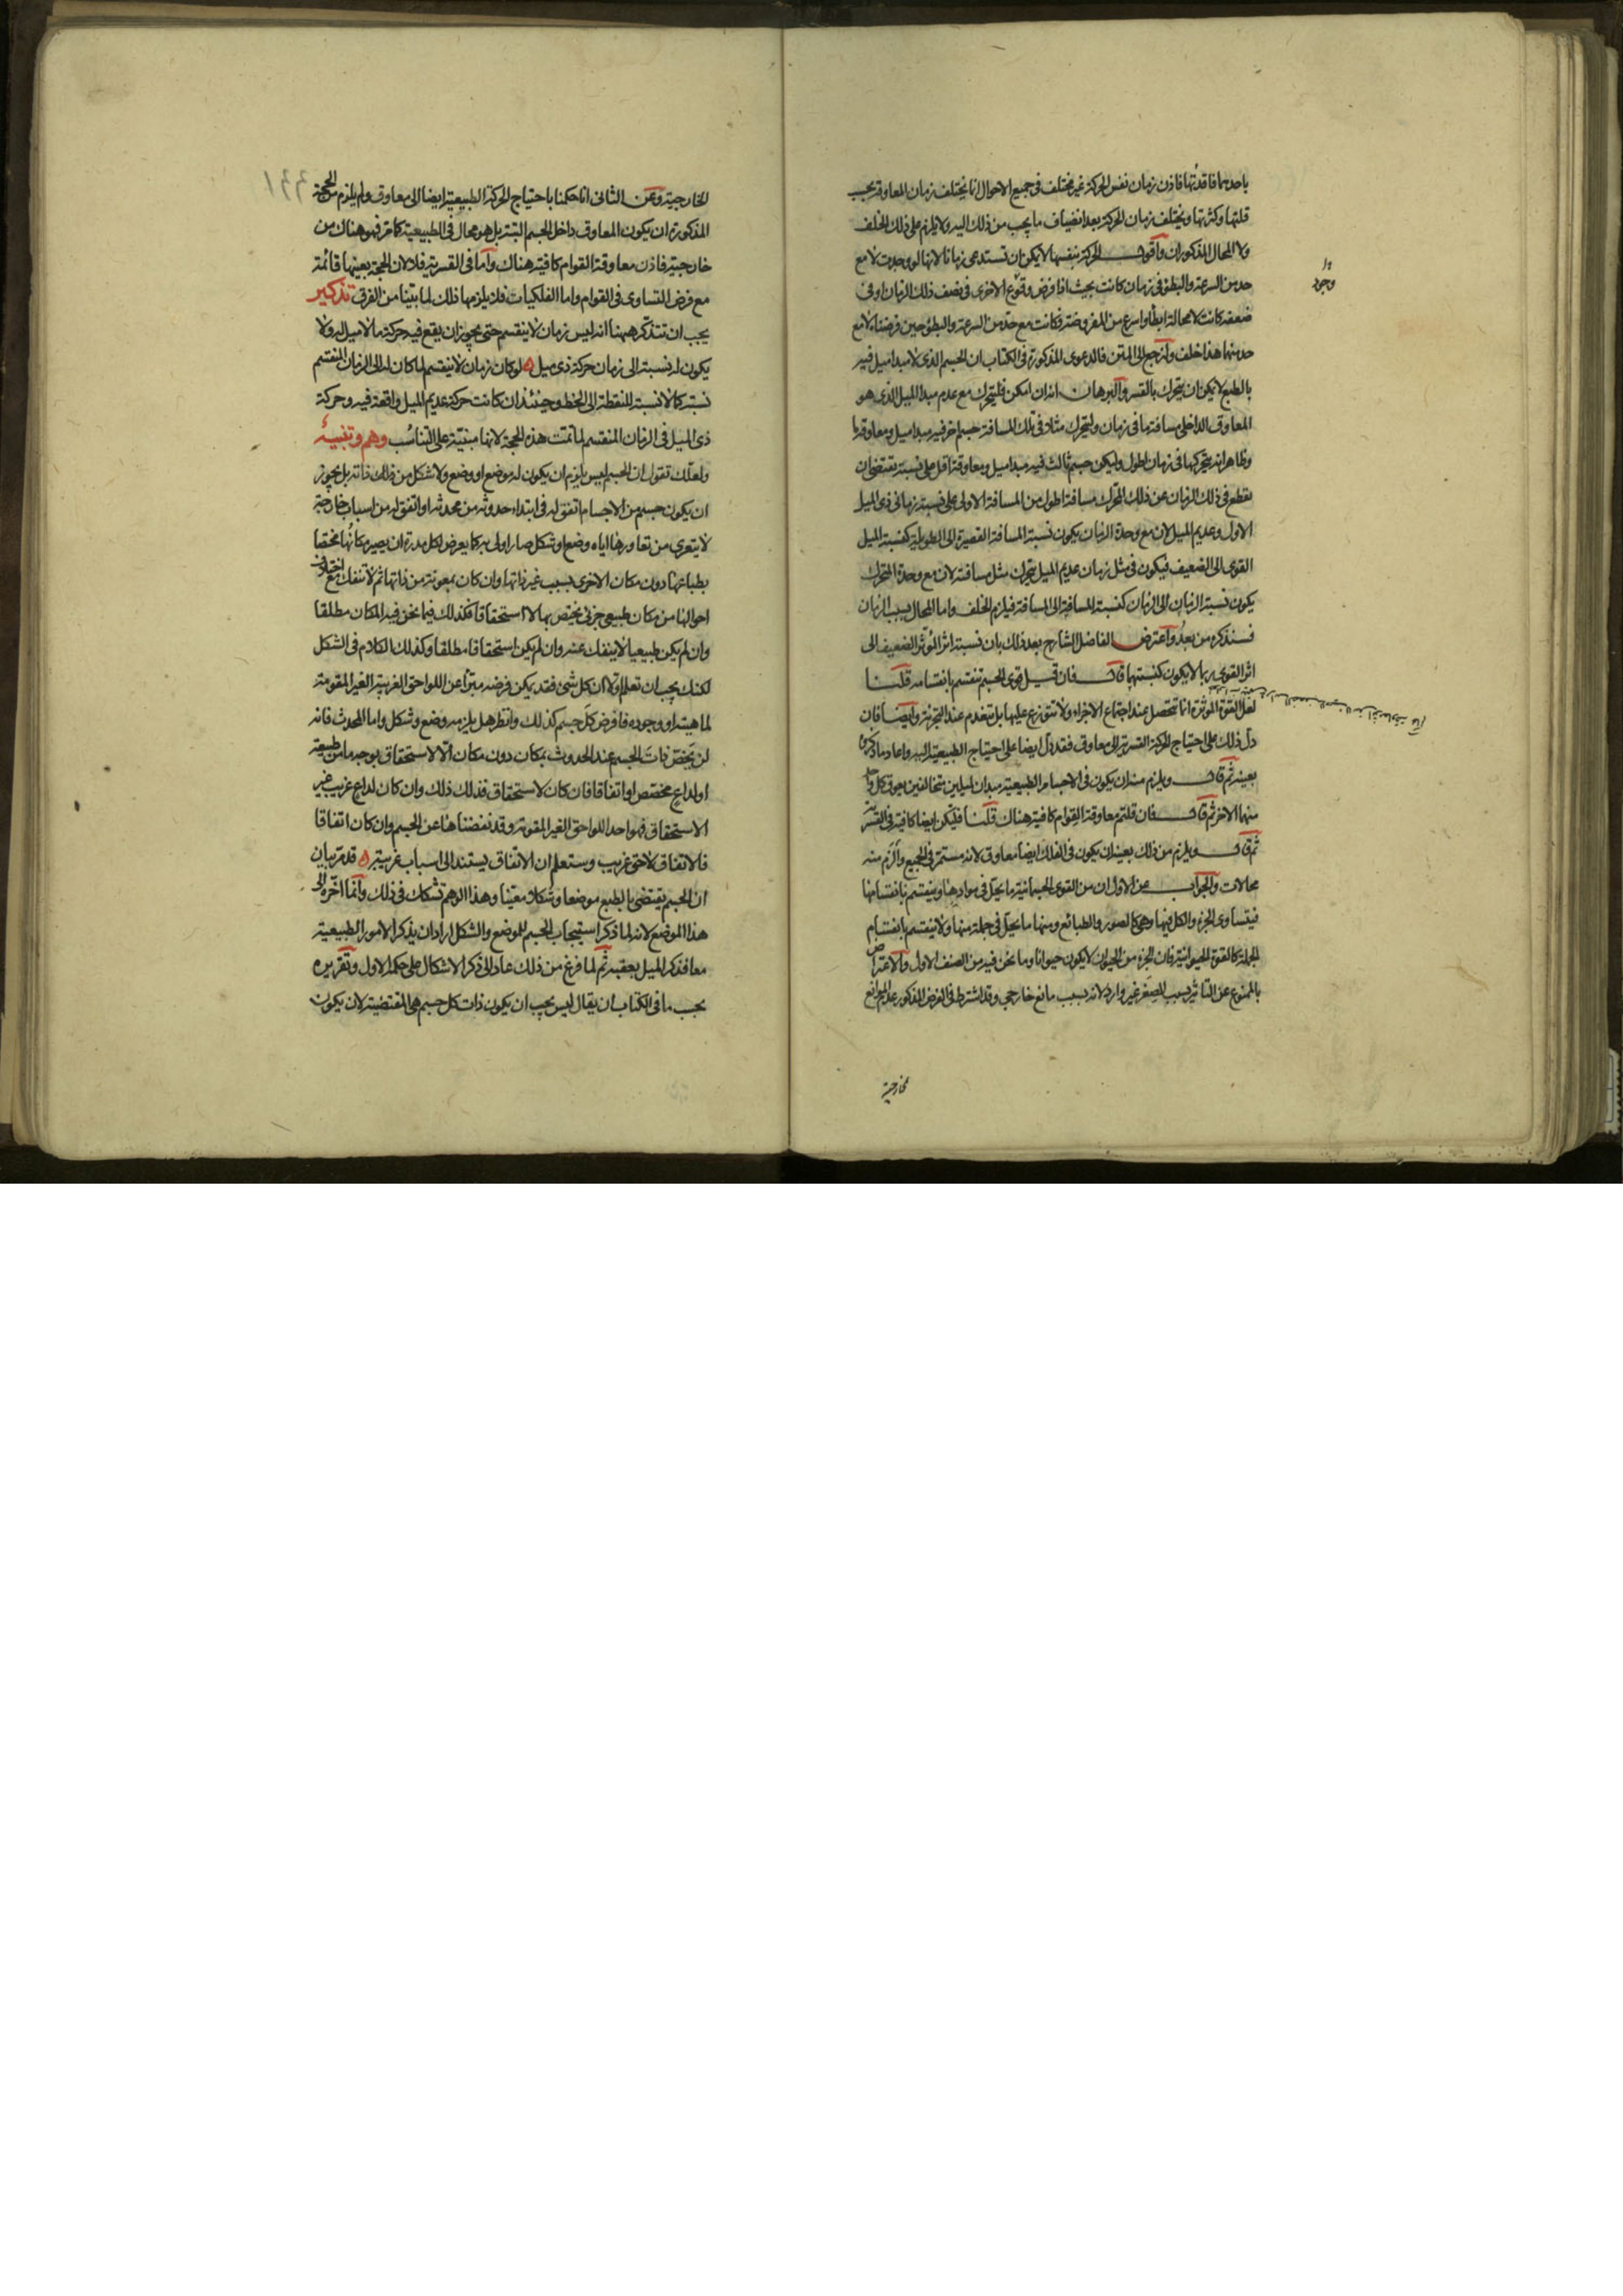 باحدهما فاقدتها فاذن زمان نفس الحركة غير مختلف فى جميع الاحوال انما يختلف زمان المعاوقة بحسب
قلتها وكثرتها ويختلف زمان الحركة بعد انضياف ما يجب من ذلك اليه ولا يلزم على ذلك الخلف
ولا المحال المذكوران واقول الحركة بنفسها لا يمكن ان تستدعى زمانا لانها لو وجدت لا مع
وجود
حد من السرعة والبطؤ فى زمان كانت بحيث اذا فرض وقوع الاخرى فى نصف ذلك الزمان او فى
ضعفه كانت لا محالة ابطأ واسرع من المفروضة فكانت مع حد من السرعة والبطؤ حين فرضناه لا مع
حد منهما هذا خلف ولنرجع الى المتن فالدعوى المذكورة فى الكتاب ان الجسم الذى لا مبدا ميل فيه
بالطبع لا يمكن ان يتحرك بالقسر والبرهان انه ان امكن فليتحرك مع عدم مبدا الميل الذى هو
المعاوق الداخلى مسافة ما فى زمان وليتحرك مثلا فى تلك المسافة جسم اخر فيه مبدا ميل ومعاوقة ما
وظاهر انه يتحركها فى زمان اطول وليكن جسم ثالث فيه مبدا ميل ومعاوقة اقل على نسبة تقتضى ان
يقطع فى ذلك الزمان عن ذلك المحرك مسافة اطول من المسافة الاولى على نسبة زمانى ذى الميل
الاول وعديم الميل لان مع وحدة الزمان يكون نسبة المسافة القصيرة الى الطويلة كنسبة الميل
القوى الى الضعيف فيكون فى مثل زمان عديم الميل يتحرك مثل مسافته لان مع وحدة المتحرك
يكون نسبة الزمان الى الزمان كنسبة المسافة الى المسافة فيلزم الخلف واما المحال بسبب الزمان
فسنذكره من بعد واعترض الفاضل الشارح بعد ذلك بان نسبة اثر المؤثر الضعيف الى
اثر القوى ربما لا يكون كنسبتهما قال فان قيل قوى الجسم تنقسم بانقسامه قلنا
لعل القوة المؤثرة انما تتحصل عند اجتماع الاجزاء ولا تتوزع عليها بل تنعدم عند التجزئة وايضا فان
دل ذلك على احتياج الحركة القسرية الى معاوق فقد دل ايضا على احتياج الطبيعية اليه واعاد ما ذكره
بعينه ثم قال ويلزم منه ان يكون فى الاجسام الطبيعية مبدان لميلين متخالفين يعوق كل واحد
منهما الاخر ثم قال فان قلتم معاوقة القوام كافية هناك قلنا فليكن ايضا كافية فى القسرية
ثم قال ويلزم من ذلك بعينه ان يكون فى الفلك ايضا معاوق لانه مستمر فى الجميع والزم منه
محالات والجواب عن الاول ان من القوى الجسمانية ما يحل فى موادها وينقسم بانقسامها
فيتساوى الجزء والكل فيها وهى كالصور والطبائع ومنها ما يحل فى جملة منها ولا ينقسم بانقسام
الجملة كالقوة الحيوانية فان الجزء من الحيوان لا يكون حيوانا وما نحن فيه من الصنف الاول والاعتراض
بالممنوع عن التاثير بسبب الصغر غير وارد لانه بسبب مانع خارجى وقد اشترط فى الفرض المذكور عدم الموانع
الخارجية
الخارجية وعن الثانى انا حكمنا باحتياج الحركة الطبيعية ايضا الى معاوق ولم يلزم من الحجة
المذكورة ان يكون المعاوق داخل الجسم البتة بل هو محال فى الطبيعية كما مر فهو هناك من
خارجية فاذن معاوقة القوام كافية هناك واما فى القسرية فلا لان الحجة بعينها قائمة
مع فرض التساوى فى القوام واما الفلكيات فلا يلزمها ذلك لما بينا من الفرق تذكير
يجب ان تتذكر ههنا انه ليس زمان لا ينقسم حتى يجوز ان يقع فيه حركة ما لا ميل له ولا
يكون له نسبة الى زمان حركة ذى ميل ه لو كان زمان لا ينقسم لما كان له الى الزمان المنقسم
نسبة كما لا نسبة للنقطة الى الخط وحينئذ ان كانت حركة عديم الميل واقعة فيه وحركة
ذى الميل فى الزمان المنقسم لما تمت هذه الحجة لانها مبنية على التناسب وهم وتنبيه
ولعلك تقول ان الجسم ليس يلزم ان يكون له موضع او وضع ولا شكل من ذلك ذاته بل يجوز
ان يكون جسم من الاجسام اتفق له فى ابتداء حدوثه من محدثه او اتفق له من اسباب خارجة
لا يتعرى من تعاورها اياه وضع او شكل صار اولى به كما يعرض لكل مدرة ان يصير مكانها مختصا
بطباعها دون مكان الاخرى بسبب غير ذاتها وان كان بمعونة من ذاتها ثم لا تنفك مع اختلاف
احوالها من مكان طبيعى جزئى يختص بها لا استحقاقا فكذلك فيما نحن فيه المكان مطلقا
وان لم يكن طبيعيا لا ينفك عنه وان لم يكن استحقاقا مطلقا وكذلك الكلام فى الشكل
لكنك يجب ان تعلم اولا ان كل شئ فقد يمكن فرضه مبرأ عن اللواحق الغريبة الغير المقومة
لماهيته او وجوده فافرض كل جسم كذلك وانظر هل يلزمه وضع وشكل واما المحدث فانه
لن يخص ذات الجسم عند الحدوث بمكان دون مكان الا لاستحقاق بوجه ما من طبيعته
او لداع مخصص او اتفاقا فان كان لاستحقاق فذلك ذلك وان كان لداع غريب غير
الاستحقاق فهو احد اللواحق الغير المقومة وقد نفضناها عن الجسم وان كان اتفاقا
فالاتفاق لاحق غريب وستعلم ان الاتفاق يستند الى اسباب غريبة ه قد مر بيان
ان الجسم يقتضى بالطبع موضعا وشكلا معينا وهذا الوهم تشكك فى ذلك وانما اخره الى
هذا الموضع لانه لما ذكر استيجاب الجسم للموضع والشكل اراد ان يذكر الامور الطبيعية
معا فذكر الميل بعقبه ثم لما فرغ من ذلك عاد الى ذكر الاشكال على حكمه الاول وتقريره
بحسب ما فى الكتاب ان يقال ليس يجب ان يكون ذات كل جسم هى المقتضية لان يكون